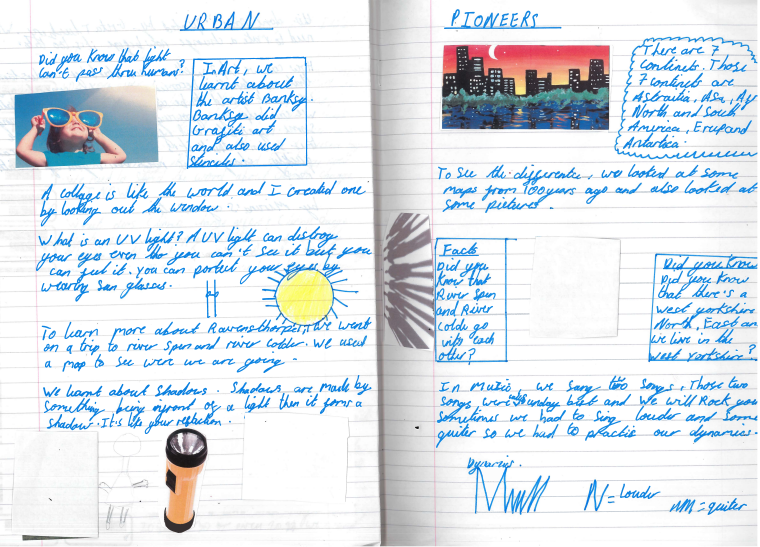 URBAN
Did you know that light
can't pass thru humans?
In Art, we
learnt about
the artist Banksy.
Banksy did
Grafiti art
and also used
stenciles.
A collage is like the world and I created one
by looking out the window.
What is an UV light? A UV light can distroy
your eyes even tho you can't see it but you
can feel it. You can portect your eyes by
wearing san glasses.
To learn more about Ravensthorpe, we went
on a trip to river spen and river colder. We used
a map to see were we are going.
We learnt about Shadows. Shadows are made by
something being infront of a light then it forms a
shadow. It's like your reflection.
PIONEERS
There are 7
continets. Those
7 continet are
Astrailia, Asa, Af
North and South
America, Erup and
Antartica.
To see the difference, we looked at some
maps from 100 years ago and also looked at
some pictures.
Facts
Did you
know that
River Spen
and River
coldr go
into each
other?
Did you know
Did you know
that there's a
west yorkshire
North, East an
we live in the
West Yorkshire?
In Music, we sang two songs, Those two
songs were sunday best and We will Rock you
sometimes we had to sing louder and some
quiter so we had to practis our dynamics.
Dynamics.
= Louder
= quiter